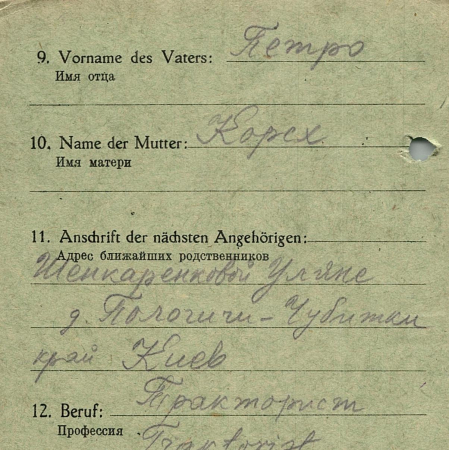 9. Vorname des Vaters: Петро
Имя отца
10. Name der Mutter: Корех
Имя матери
11. Anschrift der nächsten Angehörigen:
Адрес ближайших родственников
Шенкаренковой Уляне
д. Пологичи - Чубитки
край Киев
12. Beruf: Тракторист
Профессия Traktorist